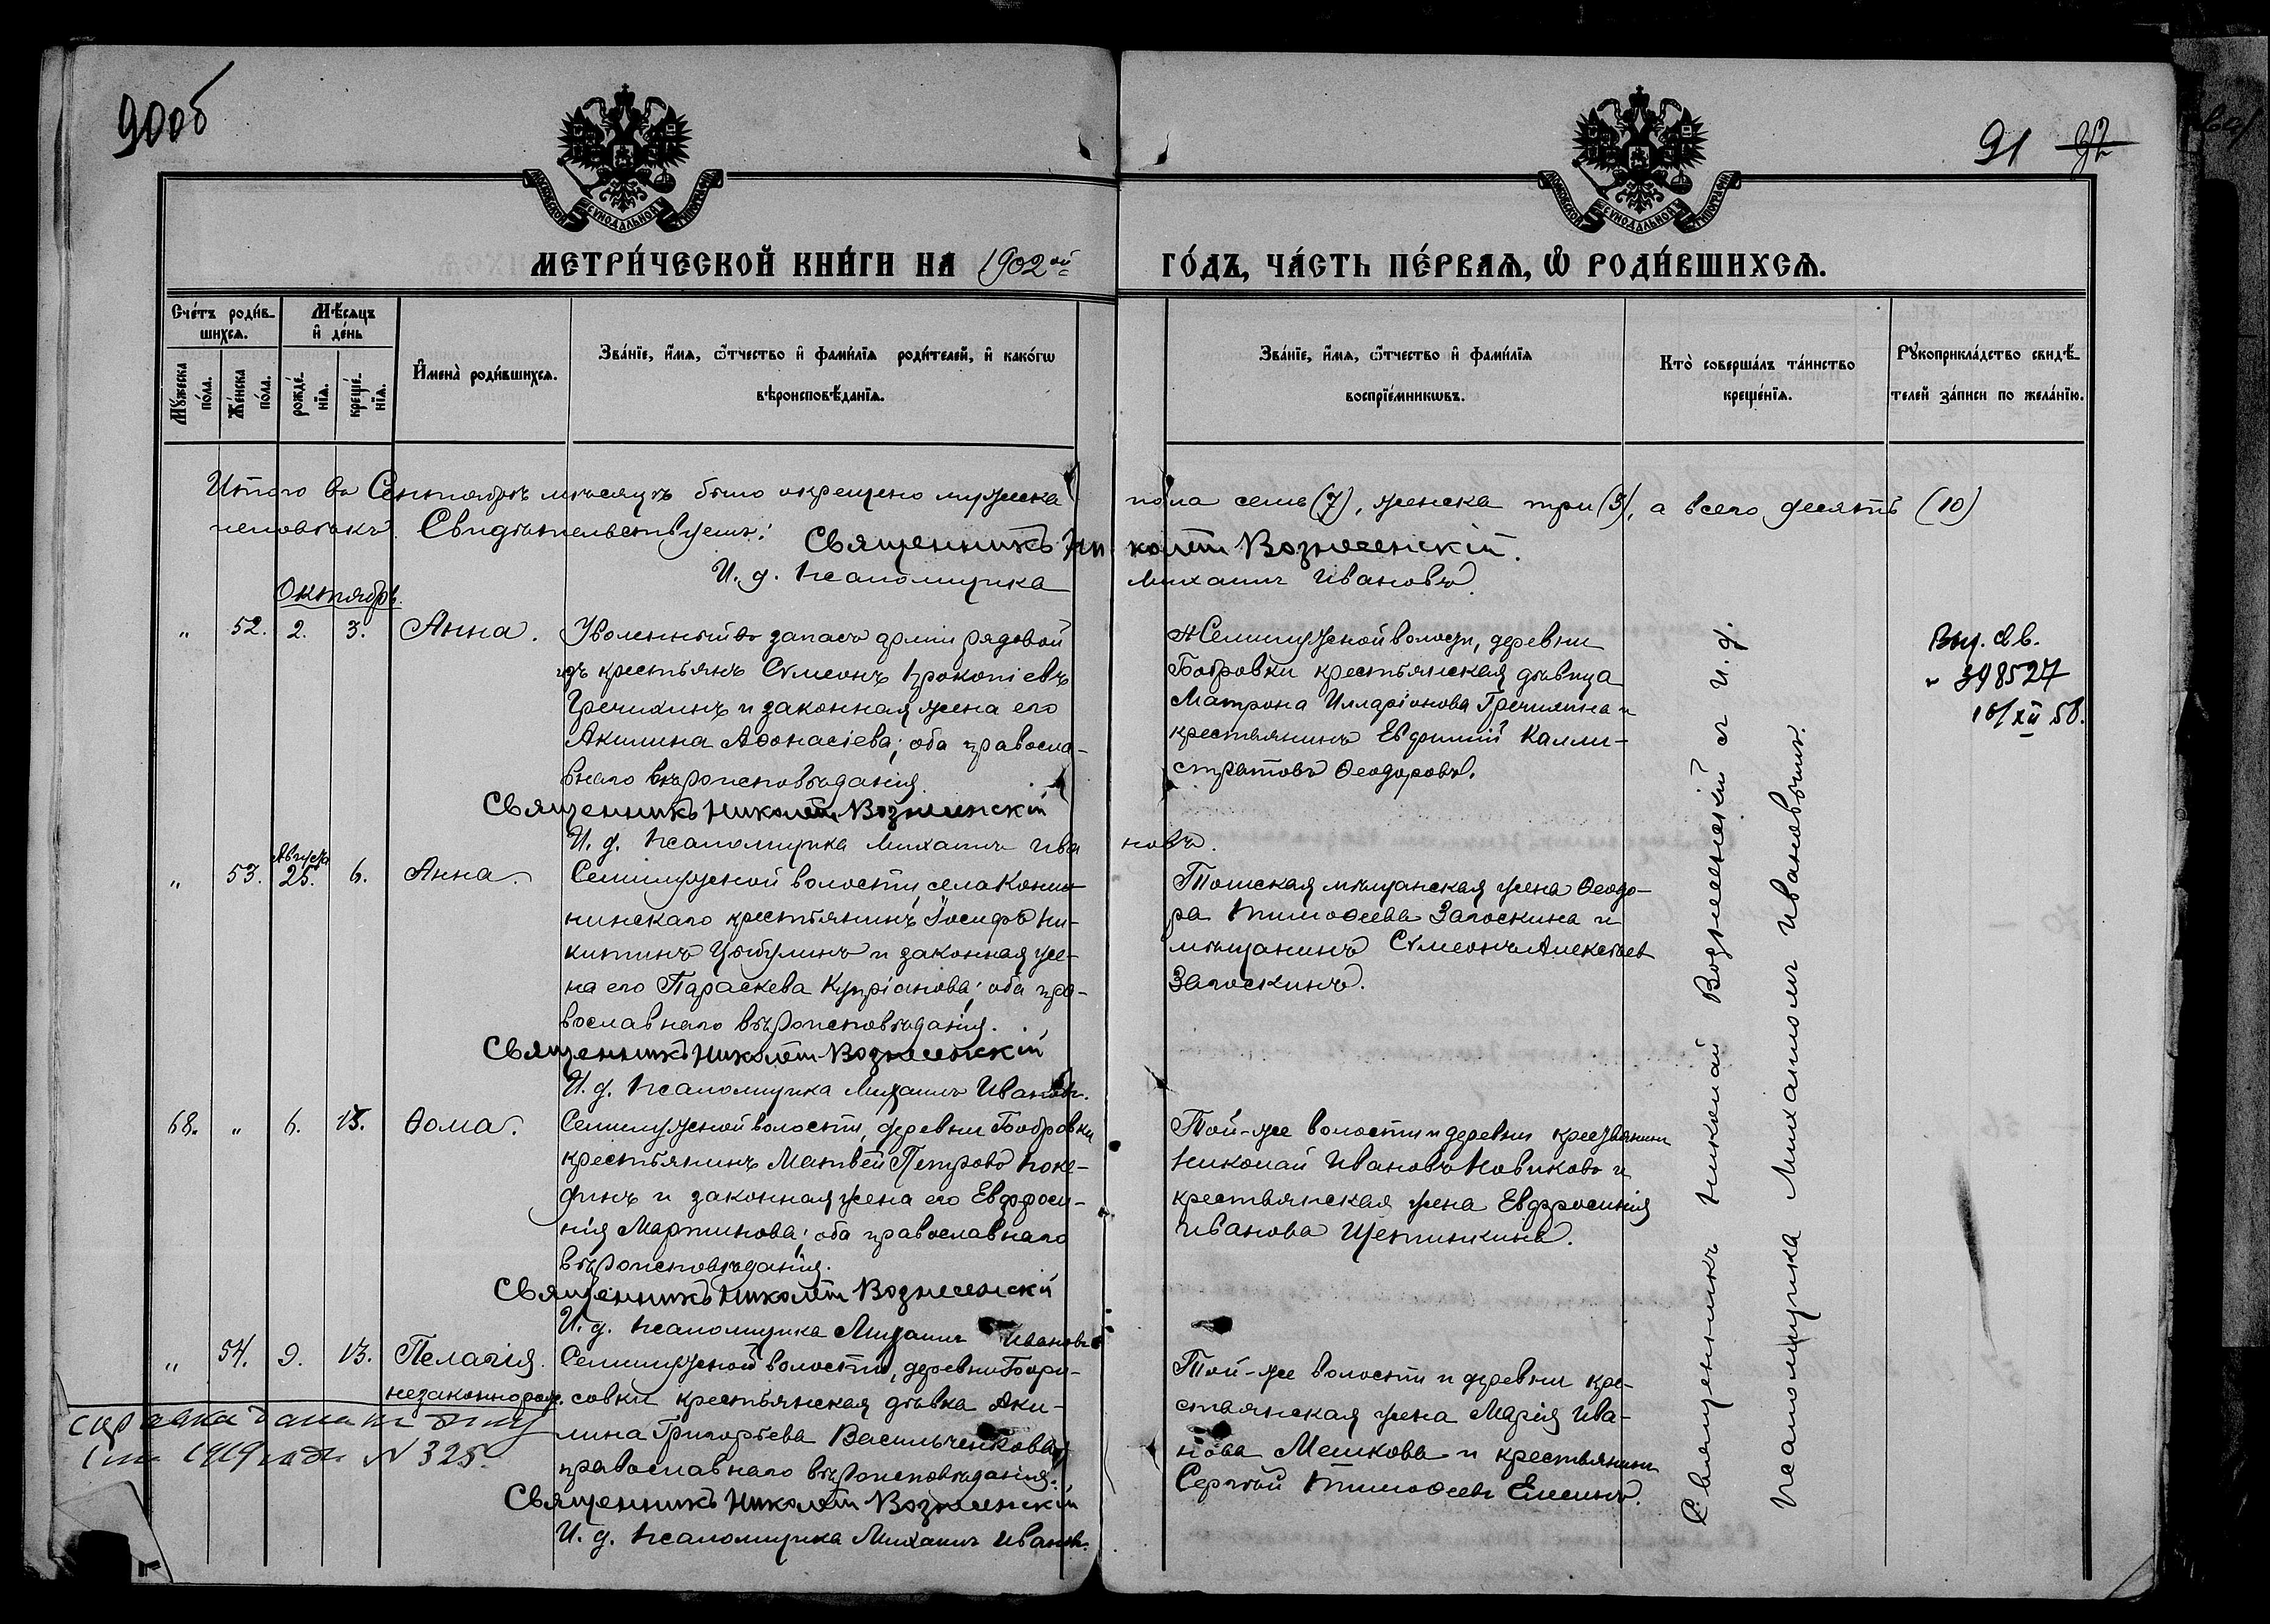 90об
91 92
МОСКОВСКОЙ СУНОДАЛЬНОЙ ТИПОГРАФІИ
МОСКОВСКОЙ СУНОДАЛЬНОЙ ТИПОГРАФІИ
МЕТРИ́ЧЕСКОЙ КНИ́ГИ НА 1902ой ГО́ДЪ, ЧА́СТЬ ПЕ́РВАѦ, Ѽ РОДИ́ВШИХСѦ.
Сче́тъ роди́в-
шихсѧ.
Мѣ́сѧцъ
и҆ де́нь
Му́жеска
по́ла.
Же́нска
по́ла.
рожде́-
нїѧ.
креще́-
нїѧ.
И҆мена̀ роди́вшихсѧ.
Зва́нїе, и҆́мѧ, ѻ҆́тчество и҆ фами́лїѧ роди́телей, и҆ како́гѡ
вѣроисповѣ́данїѧ.
Зва́нїе, и҆́мѧ, ѻ҆́тчество и҆ фами́лїѧ
воспрїе́мникѡвъ.
Кто̀ соверша́лъ та́инство
креще́нїѧ.
Рꙋкоприкла́дство свидѣ́-
телей за́писи по жела́нїю.
Итого въ Сентябрѣ мѣсяцѣ было окрещено мужеска пола семь (7), женска три (3), а всего десять (10)
человѣкъ. Свидѣтельствуемъ:
Священникъ Николай Вознесенскій.
И. д. псаломщика Михаилъ Ивановъ.
Октябрь.
" 52. 2. 3. Анна. Уволенный въ запасъ арміи рядовой
изъ крестьянъ Сѵмеонъ Прокопіевъ
Гречихинъ и законная жена его
Акилина Аѳонасіева; оба правосла-
внаго вѣроисповѣданія.
Священникъ Николай Вознесенскій
И. д. псаломщика Михаилъ Ивановъ.
Семилужной волости, деревни
Бобровки крестьянская дѣвица
Матрона Илларіонова Гречихина и
крестьянинъ Евфимій Калли-
стратовъ Ѳеодоровъ.
Выд. св.
398527
16/XII 58.
" 53. Августа 25. 6. Анна. Семилужной волости, села Конин-
нинскаго крестьянинъ Іосифъ Ни-
китинъ Цыбулинъ и законная же-
на его Параскева Купріанова; оба пра-
вославнаго вѣроисповѣданія.
Священникъ Николай Вознесенскій
И. д. псаломщика Михаилъ Ивановъ.
Томская мѣщанская жена Ѳеодо-
ра Тимоѳеева Загоскина и
мѣщанинъ Сѵмеонъ Алексѣев
Загоскинъ.
68. " 6. 13. Ѳома. Семилужной волости, деревни Бобровки
крестьянинъ Матвѣй Петровъ
и законная жена его Евфроси-
нія Мартинова; оба православнаго
вѣроисповѣданія.
Священникъ Николай Вознесенскій
И. д. псаломщика Михаилъ Ивановъ
Той-же волости и деревни крестьянинъ
Николай Ивановъ Новиковъ и
крестьянская жена Евфросинія
Иванова Щетинкина.
" 54. 9. 13. Пелагія. незаконнорож. Семилужной волости, деревни Бори-
совки крестьянская дѣвка Аки-
лина Григорьева Васильченкова,
православнаго вѣроисповѣданія.
Священникъ Николай Вознесенскій
И. д. псаломщика Михаилъ Ивановъ.
Той-же волости и деревни кре-
стьянская жена Марія Ива-
нова Мешкова и крестьянинъ
Сергѣй Тимоѳеевъ Елесинъ.
справка дана
1919 года N 325.
Священникъ Николай Вознесенскій съ и. д.
псаломщика Михаиломъ Ивановымъ.